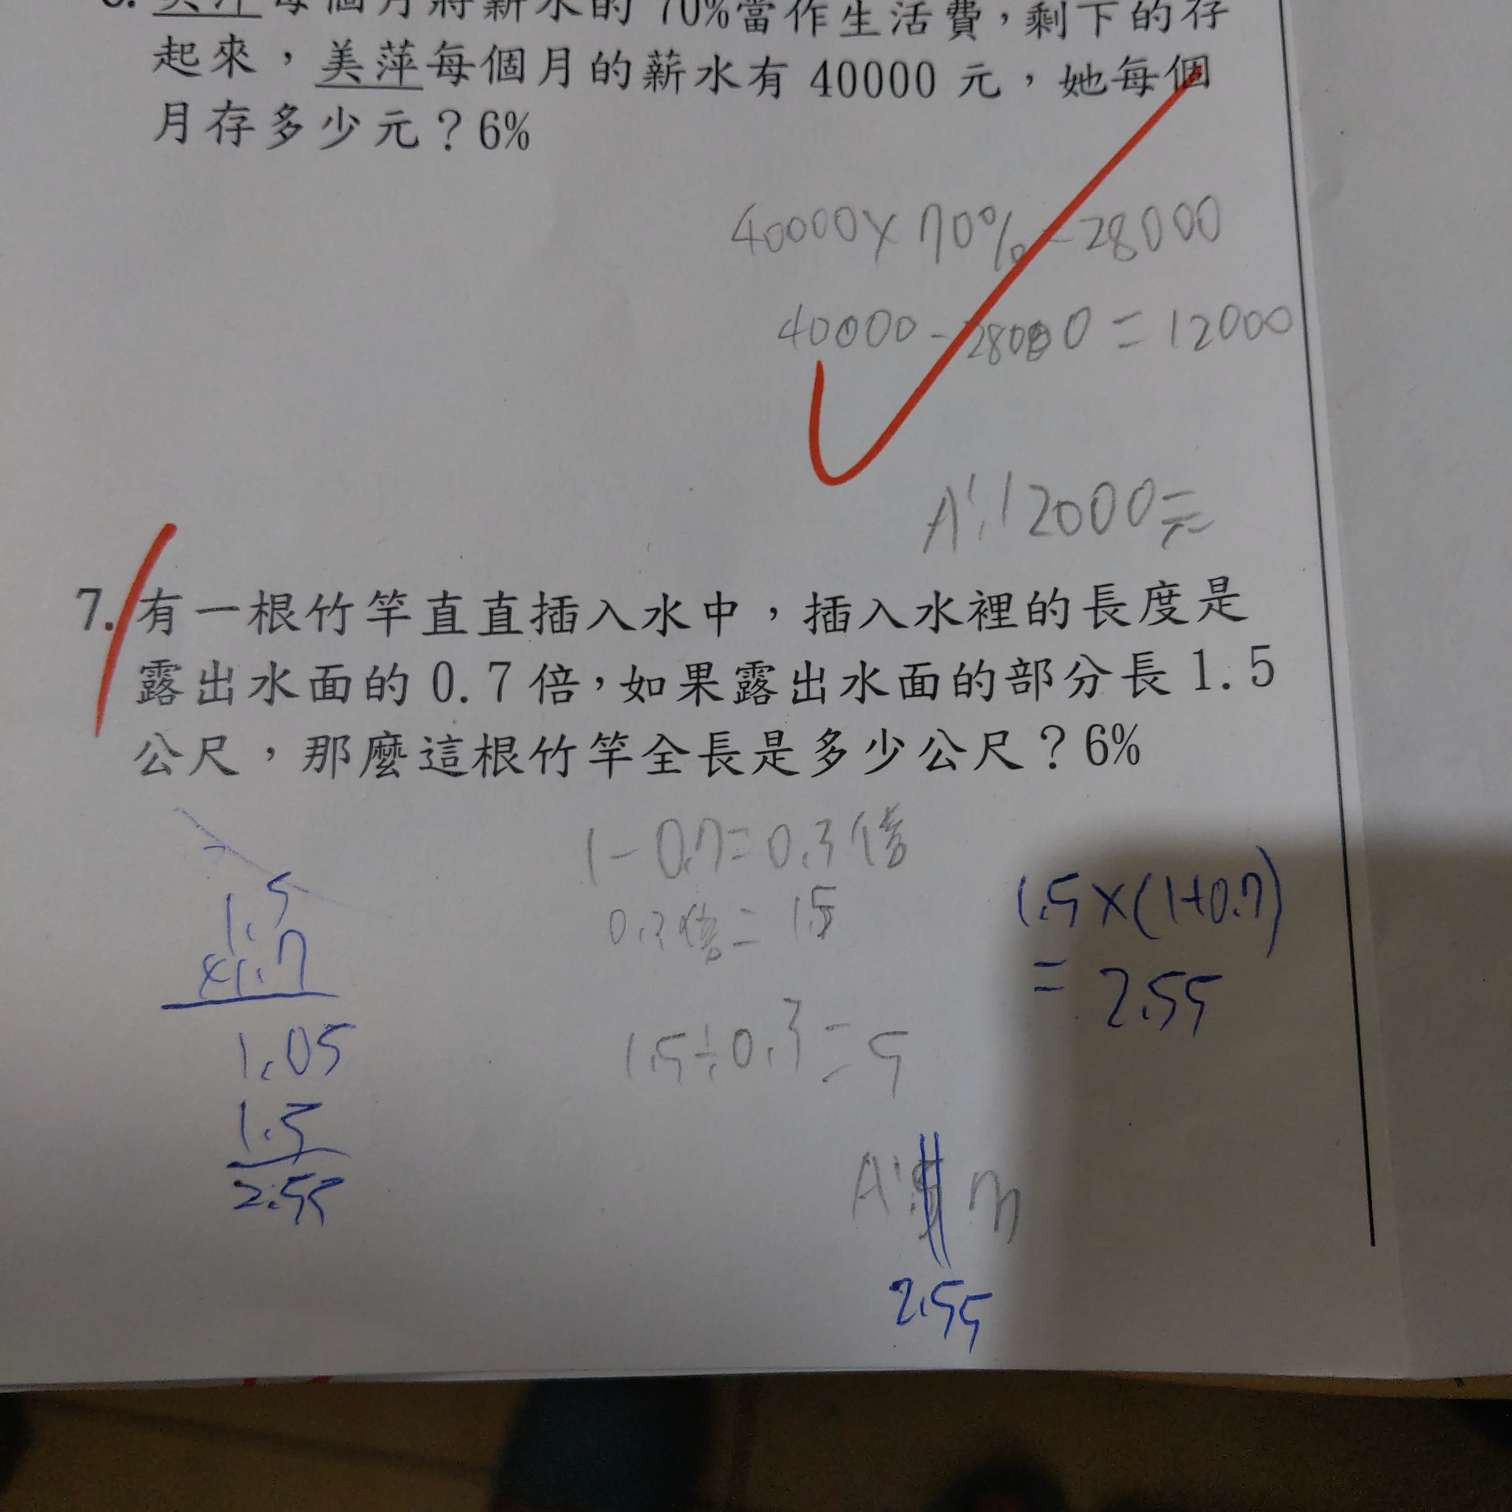 6. 美萍每個月將薪水的70%當作生活費，剩下的存
起來，美萍每個月的薪水有40000元，她每個
月存多少元？6%
40000×70%=28000
40000-28000=12000
A:12000元
7. 有一根竹竿直直插入水中，插入水裡的長度是
露出水面的0.7倍，如果露出水面的部分長1.5
公尺，那麼這根竹竿全長是多少公尺？6%
1-0.7=0.3倍
0.3倍=1.5
1.5÷0.3=5
A:5 m
2.55
1.5
×1.7
1.05
1.5
2.55
1.5×(1+0.7)
=2.55